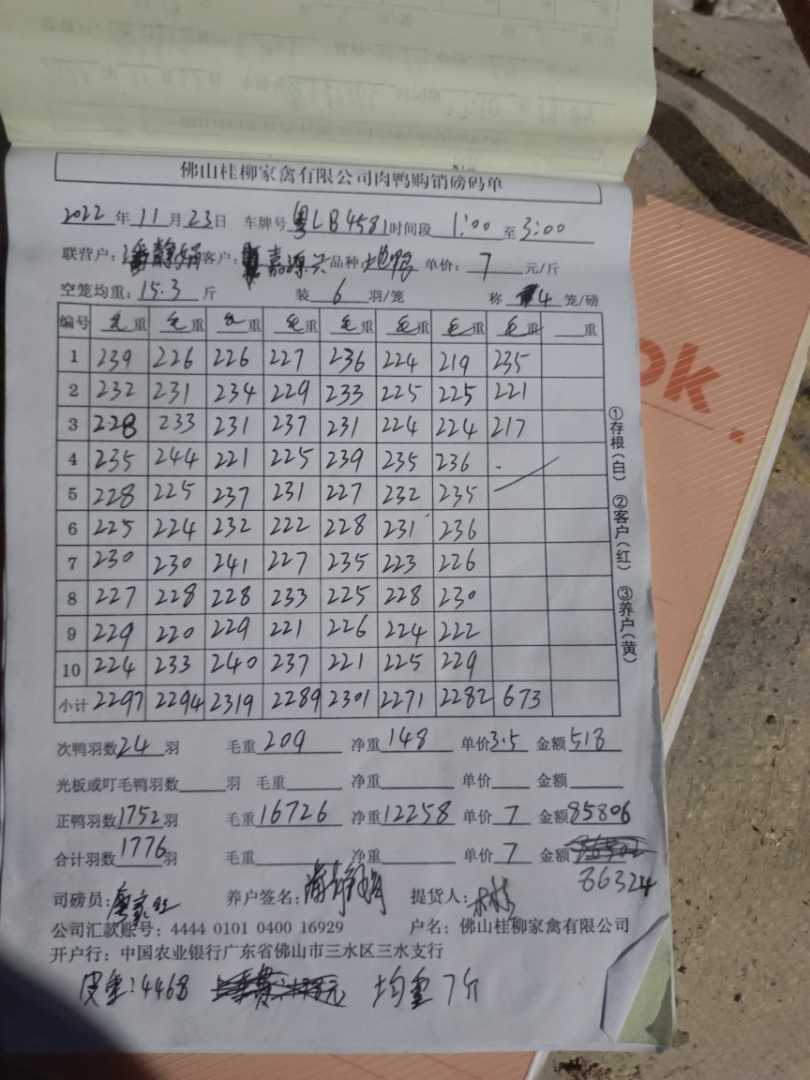 佛山桂柳家禽有限公司肉鸭购销磅码单
2022年11月23日 车牌号粤LB4581时间段1:00至3:00
联营户:潘静娟客户:嘉源兴品种:地鸭 单价:7元/斤
空笼均重:15.3斤 装6羽/笼 称4笼/磅
编号 毛重 毛重 毛重 毛重 毛重 毛重 毛重 毛重 重
1 239 226 226 227 236 224 219 235
2 232 231 234 229 233 225 225 221
3 228 233 231 237 231 224 224 217
4 235 244 221 225 239 235 236
5 228 225 237 231 227 232 235
6 225 224 232 222 228 231 236
7 230 230 241 227 235 223 226
8 227 228 228 233 225 228 230
9 229 220 229 221 226 224 222
10 224 233 240 237 221 225 229
小计 2297 2294 2319 2289 2301 2271 2282 673
次鸭羽数24羽 毛重209 净重148 单价3.5 金额518
光板或叮毛鸭羽数 羽 毛重 净重 单价 金额
正鸭羽数1752羽 毛重16726 净重12258 单价7 金额85806
合计羽数1776羽 毛重 净重 单价7 金额
86324
司磅员: 养户签名: 提货人:
公司汇款账号:4444 0101 0400 16929 户名:佛山桂柳家禽有限公司
开户行:中国农业银行广东省佛山市三水区三水支行
皮重:4468 均重7斤
①存根(白) ②客户(红) ③养户(黄)
ok.